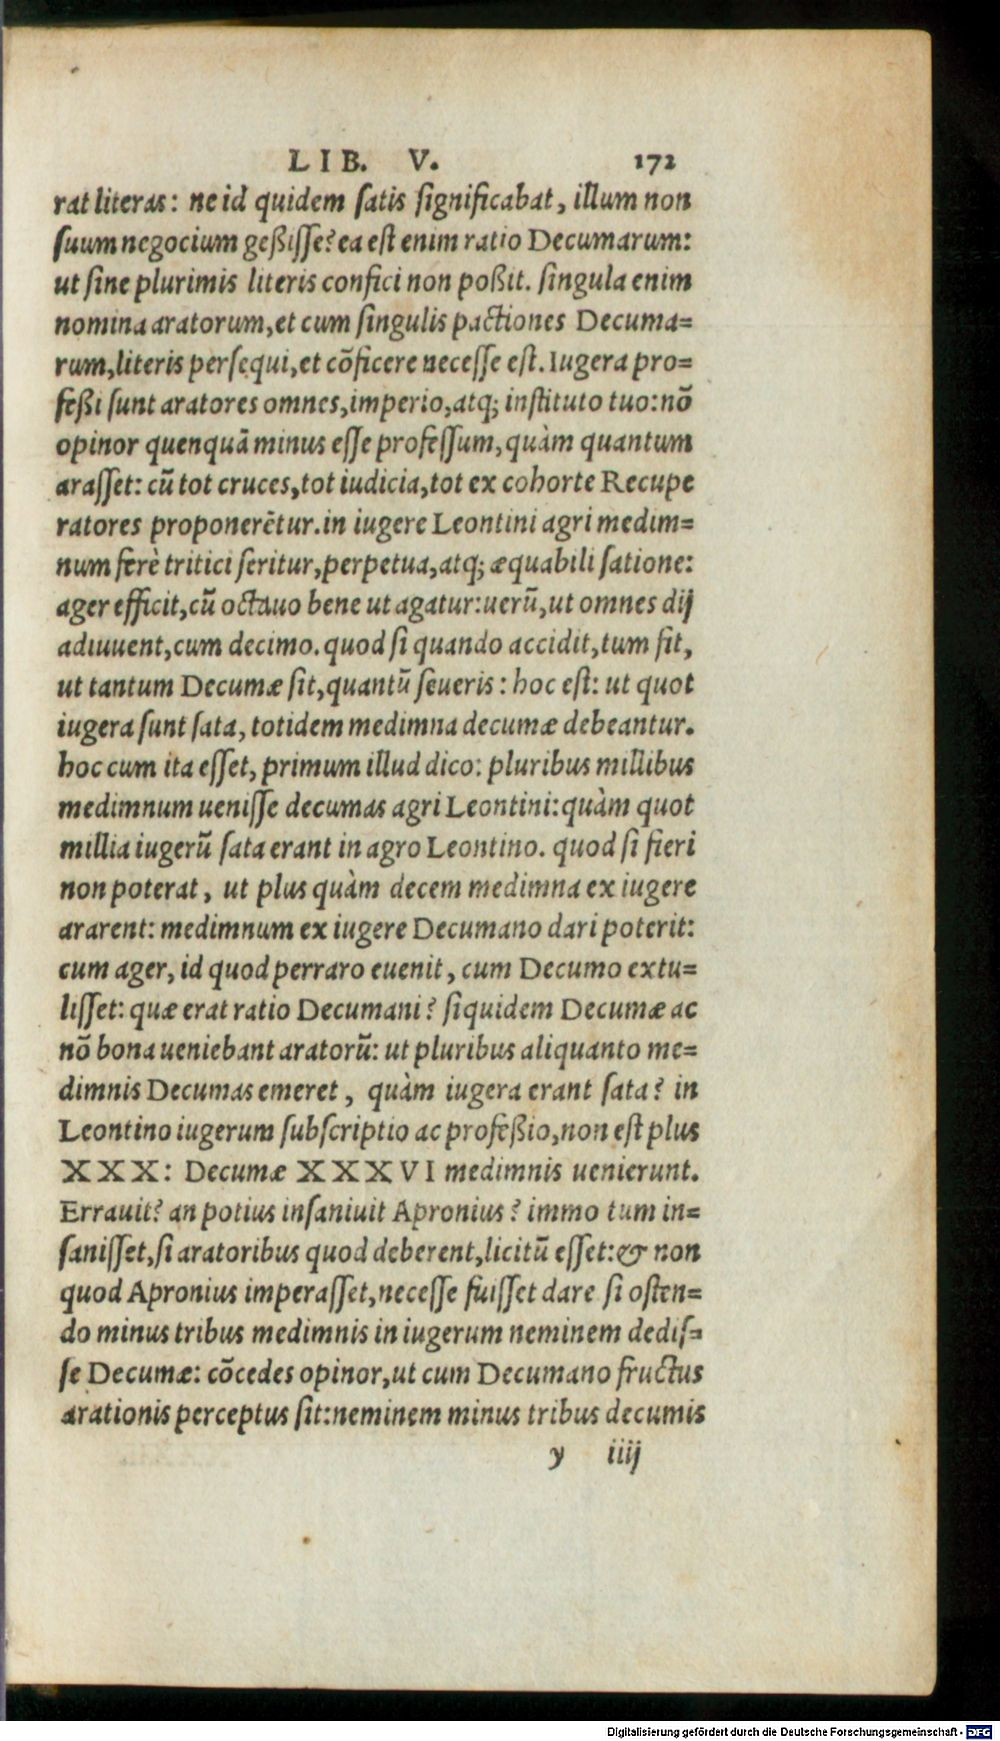 LIB. V. 172
rat literas: ne id quidem satis significabat, illum non
suum negocium geßisse? ea est enim ratio Decumarum:
ut sine plurimis literis confici non poßit. singula enim
nomina aratorum, et cum singulis pactiones Decuma=
rum, literis persequi, et cõficere necesse est. Iugera pro=
feßi sunt aratores omnes, imperio, atq; instituto tuo: nõ
opinor quenquã minus esse professum, quàm quantum
arasset: cũ tot cruces, tot iudicia, tot ex cohorte Recupe
ratores proponerẽtur. in iugere Leontini agri medim=
num ferè tritici seritur, perpetua, atq; æquabili satione:
ager efficit, cũ octauo bene ut agatur: uerũ, ut omnes dij
adiuuent, cum decimo. quod si quando accidit, tum fit,
ut tantum Decumæ sit, quantũ seueris: hoc est: ut quot
iugera sunt sata, totidem medimna decumæ debeantur.
hoc cum ita esset, primum illud dico: pluribus millibus
medimnum uenisse decumas agri Leontini: quàm quot
millia iugerũ sata erant in agro Leontino. quod si fieri
non poterat, ut plus quàm decem medimna ex iugere
ararent: medimnum ex iugere Decumano dari poterit:
cum ager, id quod perraro euenit, cum Decumo extu=
lisset: quæ erat ratio Decumani? siquidem Decumæ ac
nõ bona ueniebant aratorũ: ut pluribus aliquanto me=
dimnis Decumas emeret, quàm iugera erant sata? in
Leontino iugerum subscriptio ac profeßio, non est plus
XXX: Decumæ XXXVI medimnis uenierunt.
Errauit? an potius insaniuit Apronius? immo tum in=
sanisset, si aratoribus quod deberent, licitũ esset: & non
quod Apronius imperasset, necesse fuisset dare si osten=
do minus tribus medimnis in iugerum neminem dedis=
se Decumæ: cõcedes opinor, ut cum Decumano fructus
arationis perceptus sit: neminem minus tribus decumis
y iiij
Digitalisierung gefördert durch die Deutsche Forschungsgemeinschaft - DFG